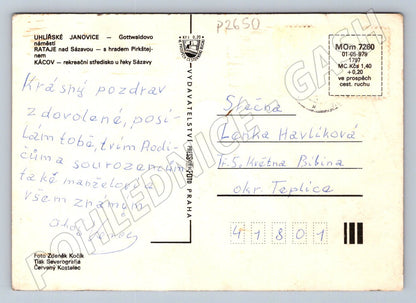 P2650
UHLÍŘSKÉ JANOVICE — Gottwaldovo
náměstí
RATAJE nad Sázavou — s hradem Pirkštej-
nem
KÁCOV — rekreační středisko u řeky Sázavy
Krásný pozdrav
z dovolené, posí-
lám tobě, tvím Rodi-
čům a sourozencům
také manželovi a
všem známím
VYDAVATELSTVÍ PRAHA
MOm 7280
01-05-979
1797
MC Kčs 1,40
+0,20
ve prospěch
cest. ruchu
Slečna
Lenka Havlíková
F.S. Května Bibina
okr Teplice
41801
Foto Zdeněk Kočík
Tisk Severografia
Červený Kostelec
POHLEDNICE